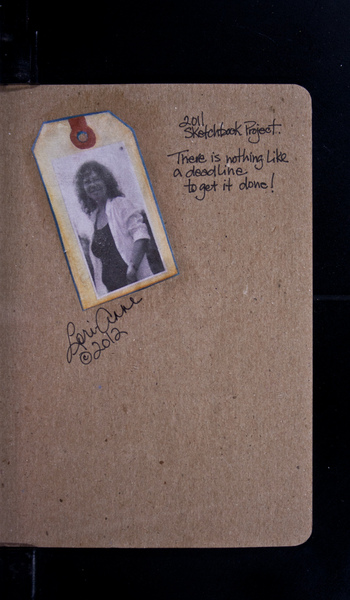 2011
Sketchbook Project.
There is nothing like
a deadline
to get it done!
Lori Anne
© 2012